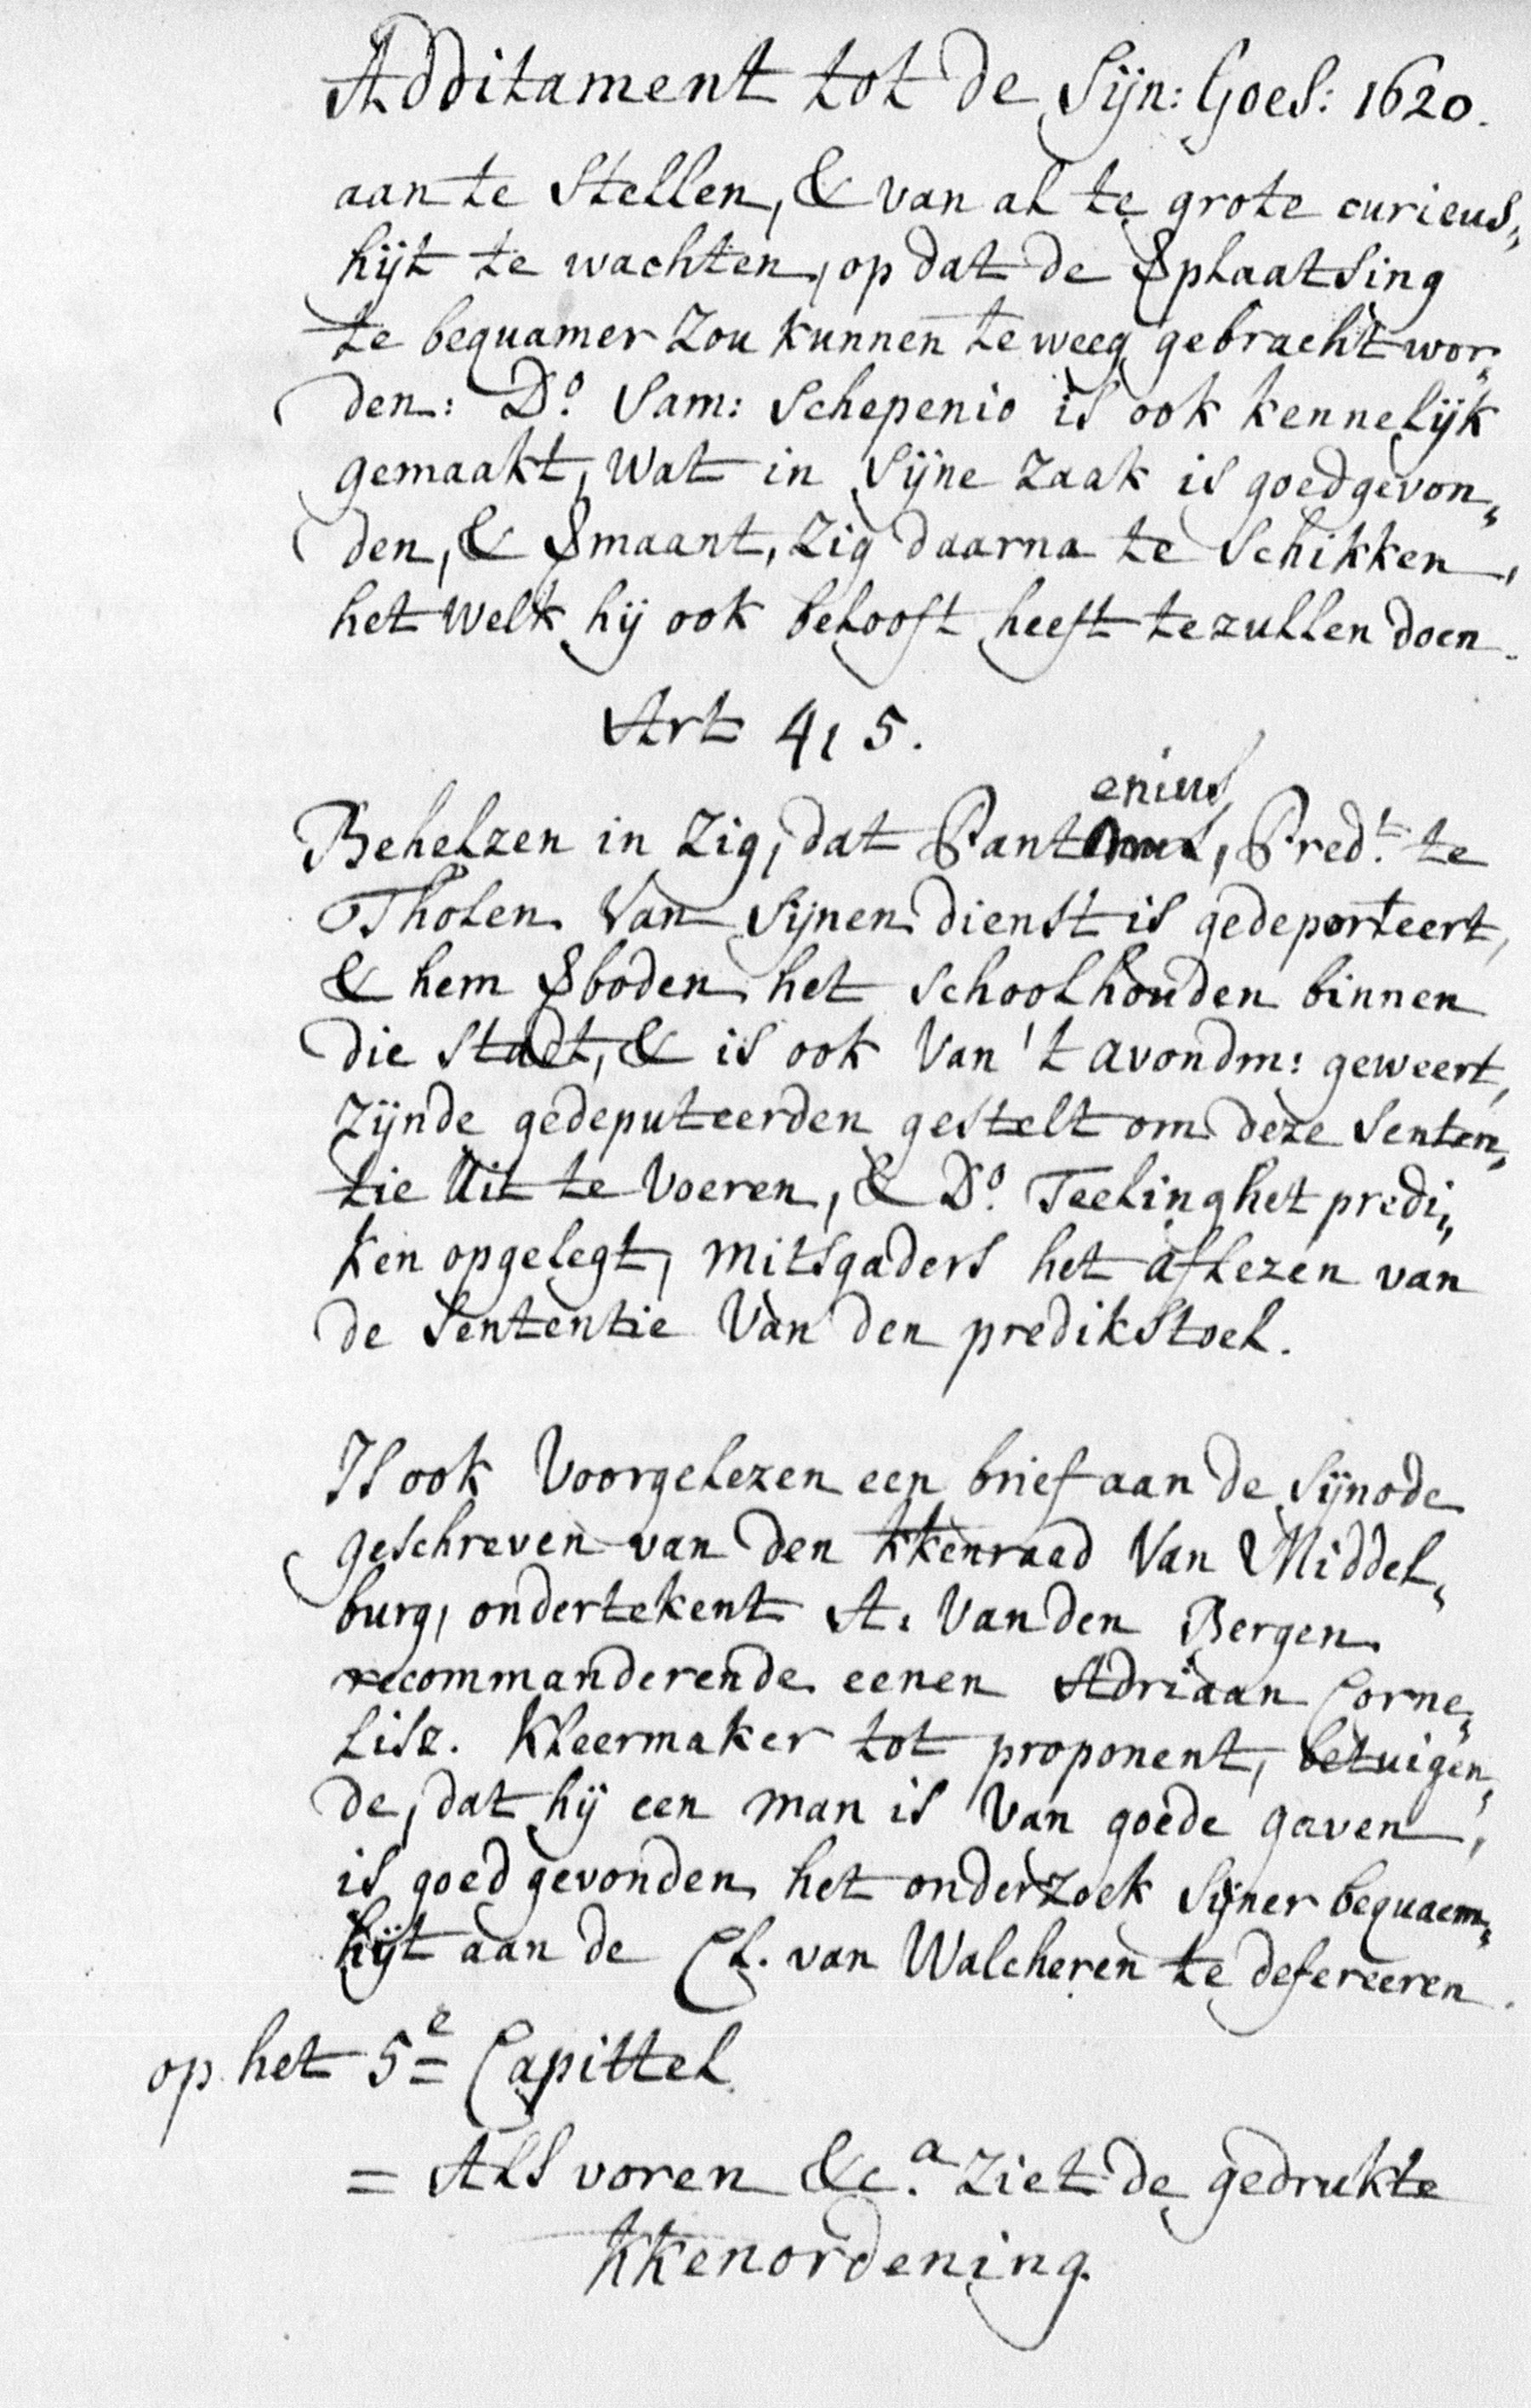 Additament tot de Sijn: Goes: 1620.
aan te stellen, & van al te grote curieus„
hijt te wachten, op dat de §plaatsing
te bequamer zou kunnen te weeg gebracht wor„
den: Do. Sam: Schepenio is ook kennelijk
gemaakt, wat in sijne zaak is goedgevon„
den, & §maant, zig daarna te schikken,
het welk hij ook belooft heeft te zullen doen.
Art 4, 5.
enius,
Behelzen in zig, dat Pant, Predt. te
Tholen van sijnen dienst is gedeporteert,
& hem §boden het schoolhouden binnen
die stadt, & is ook van 't avondm: geweert,
zijnde gedeputeerden gestelt om deze senten„
tie uit te voeren, & Do. Teeling het predi„
ken opgelegt, mitsgaders het aflezen van
de sententie van den predikstoel.
Is ook voorgelezen een brief aan de sijnode
geschreven van den kkenraed van Middel„
burg, ondertekent A. van den Bergen
recommanderende eenen Adriaan Corne„
lisz. Kleermaker tot proponent, betuigen„
de, dat hij een man is van goede gaven,
is goed gevonden het onderzoek sijner bequaem„
hijt aan de Cl. van Walcheren te defereeren.
op het 5e Capittel
= Als voren &c.a Ziet de gedrukte
kkenordening.